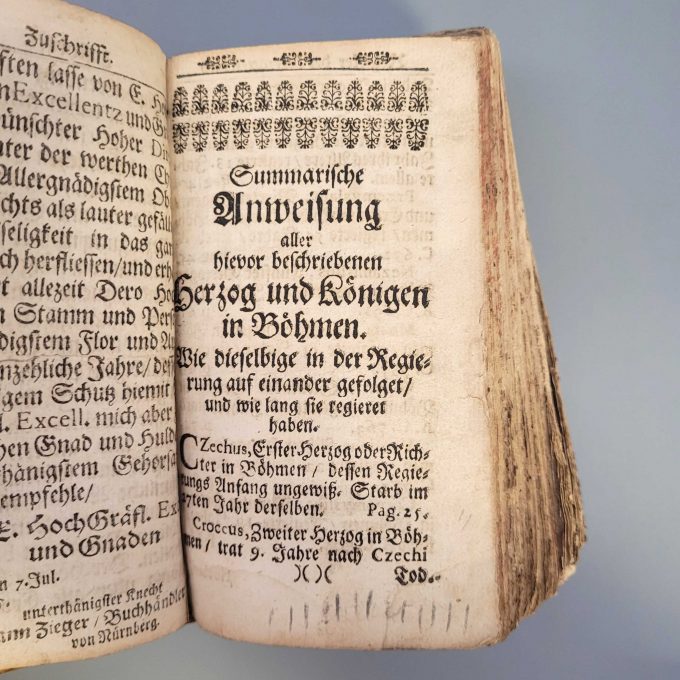 Zuschrifft.
ften lasse von E. Ho
n Excellentz und G
ünschter Hoher D
nter der werthen C
Allergnädigstem Ob
chts als lauter gefäll
seligkeit in das gan
ch herfliessen/und erb
t allezeit Dero Ho
n Stamm und Per
digstem Flor und A
nzehliche Jahre/ dess
gem Schutz hiemit
l. Excell. mich aber
hen Gnad und Huld
thänigstem Gehorsa
empfehle/
E. HochGräfl. Exc
und Gnaden
n 7. Jul.
unterthänigster Knecht
ann Zieger/ Buchhändler
von Nürnberg.
Summarische
Anweisung
aller
hievor beschriebenen
Herzog und Königen
in Böhmen.
Wie dieselbige in der Regie-
rung auf einander gefolget/
und wie lang sie regieret
haben.
CZechus, Erster Herzog oder Rich-
ter in Böhmen/ dessen Regie-
rungs Anfang ungewiß. Starb im
27ten Jahr derselben. Pag. 25.
Croccus, Zweiter Herzog in Böh-
men/ trat 9. Jahre nach Czechi
)( )( Tod.